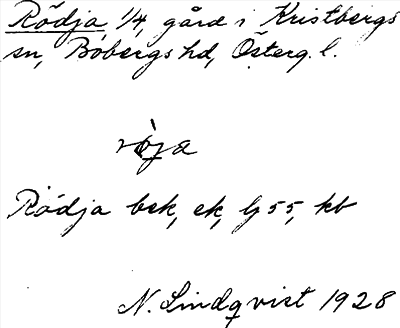 Rödja 1/4, gård i Kristbergs
sn, Bobergs hd, Österg. l.
röja
Rödja bsk, ek, lj 55, kb
N. Lindqvist 1928